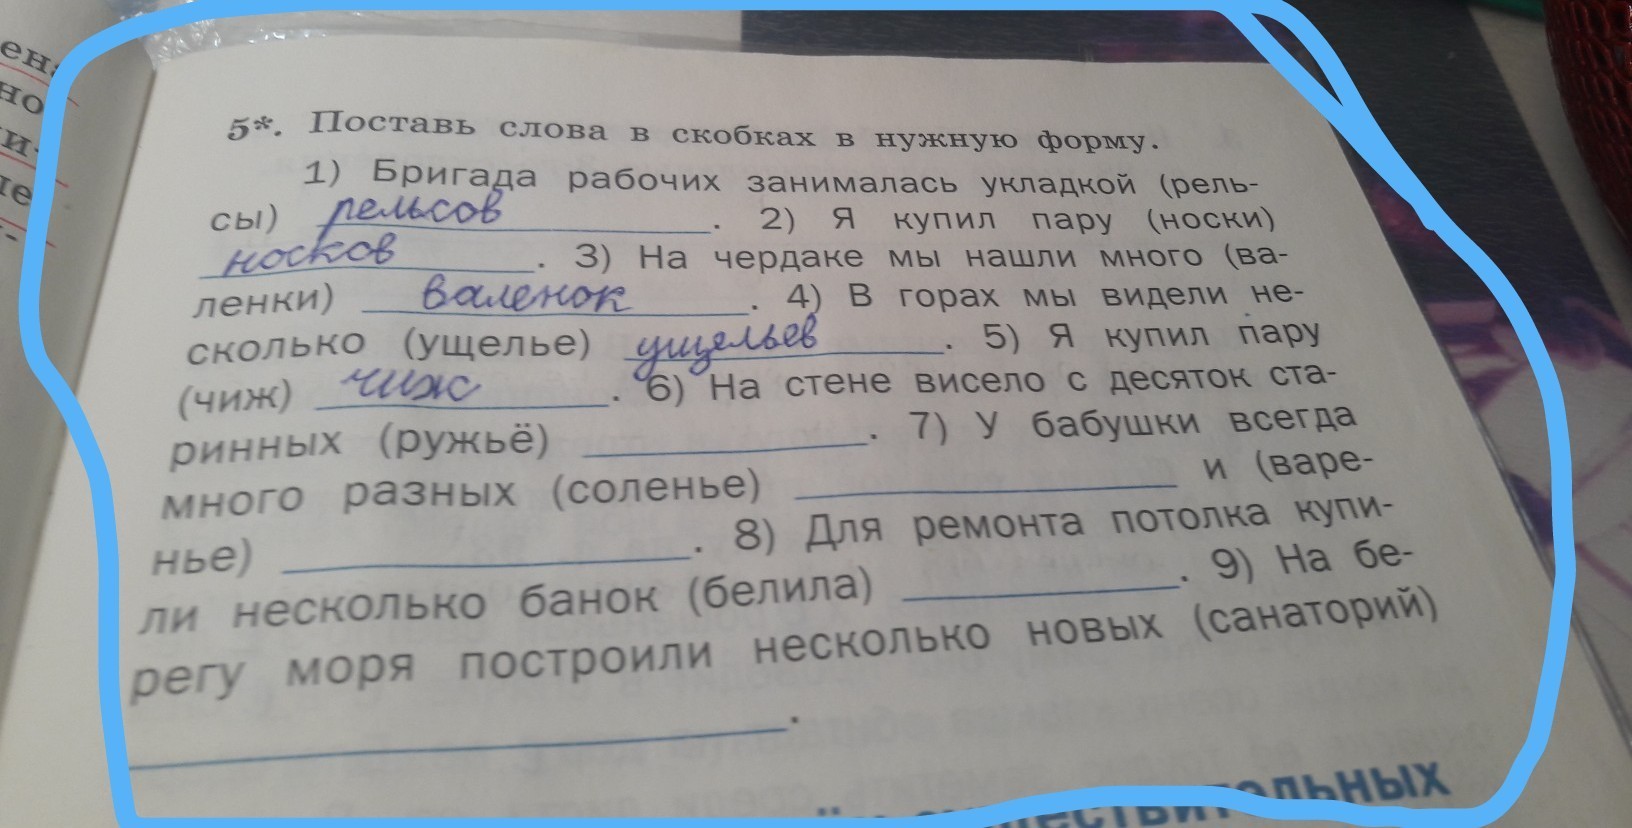 ен
но
и-
5*. Поставь слова в скобках в нужную форму.
1) Бригада рабочих занималась укладкой (рель-
сы) рельсов. 2) Я купил пару (носки)
носков. 3) На чердаке мы нашли много (ва-
ленки) валенок. 4) В горах мы видели не-
сколько (ущелье) ущельев. 5) Я купил пару
(чиж) чиж. 6) На стене висело с десяток ста-
ринных (ружьё) . 7) У бабушки всегда
много разных (соленье) и (варе-
нье) . 8) Для ремонта потолка купи-
ли несколько банок (белила) . 9) На бе-
регу моря построили несколько новых (санаторий)
.